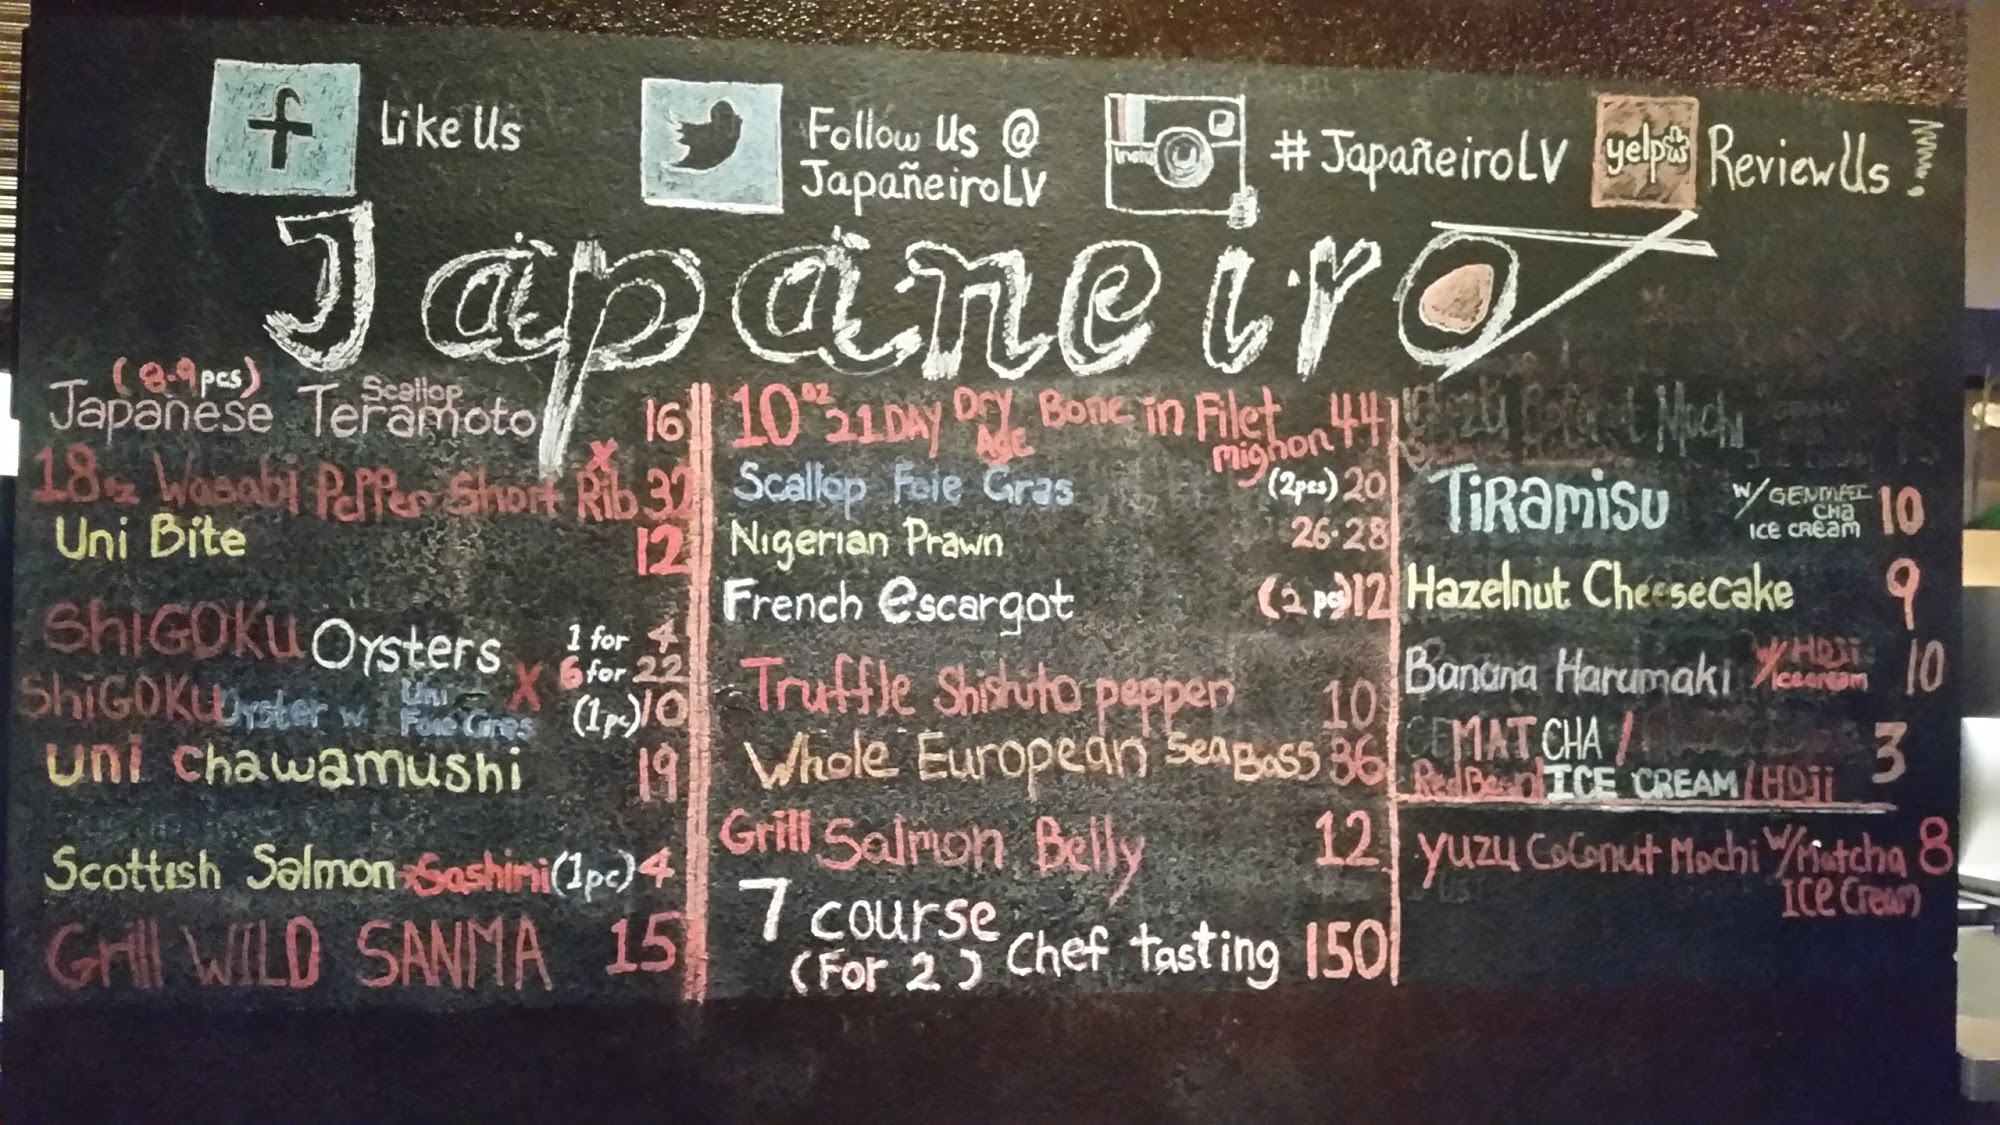 f Like Us
Follow Us @
JapañeiroLV
Insta
#JapañeiroLV
yelp
Review Us
Japaneiro
(8-9pcs)
Japanese Scallop Teramoto 16
18oz Wasabi Pepper Short Rib x 32
Uni Bite 12
SHiGOKU Oysters 1 for 4
x 6 for 22
SHiGOKU Oyster w. Uni Foie Gras (1pc) 10
Uni Chawamushi 19
Scottish Salmon Sashimi (1pc) 4
Grill WILD SANMA 15
10oz 21 DAY Dry Age Bone in Filet Mignon 44
Scallop Foie Gras (2pcs) 20
Nigerian Prawn 26-28
French escargot (2 pcs) 12
Truffle Shishito pepper 10
Whole European Sea Bass 36
Grill Salmon Belly 12
7 course
(For 2) Chef tasting 150
Mochi
TiRamisu w/ GENMAI CHA ICE CREAM 10
Hazelnut Cheesecake 9
Banana Harumaki w/ HOJI Icecream 10
MATCHA / 3
Red Bean / ICE CREAM / HOJI
YUZU COCONUT Mochi w/ Matcha 8
ICE Cream